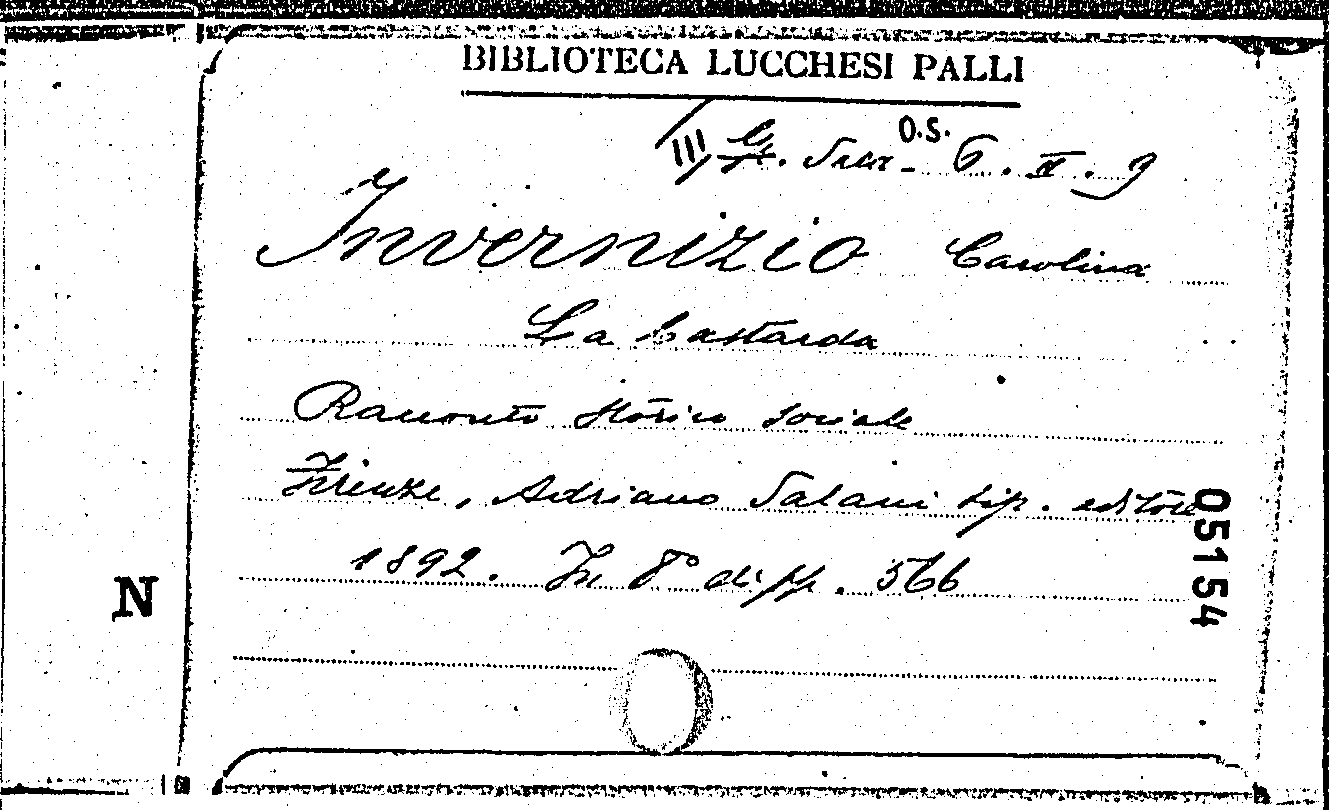 BIBLIOTECA LUCCHESI PALLI
O.S.
III 6. II. 9
Invernizio Carolina
La bastarda
Racconto storico sociale
Firenze, Adriano Salani tip. editore
1892. In 8° di pp. 566
05154
N